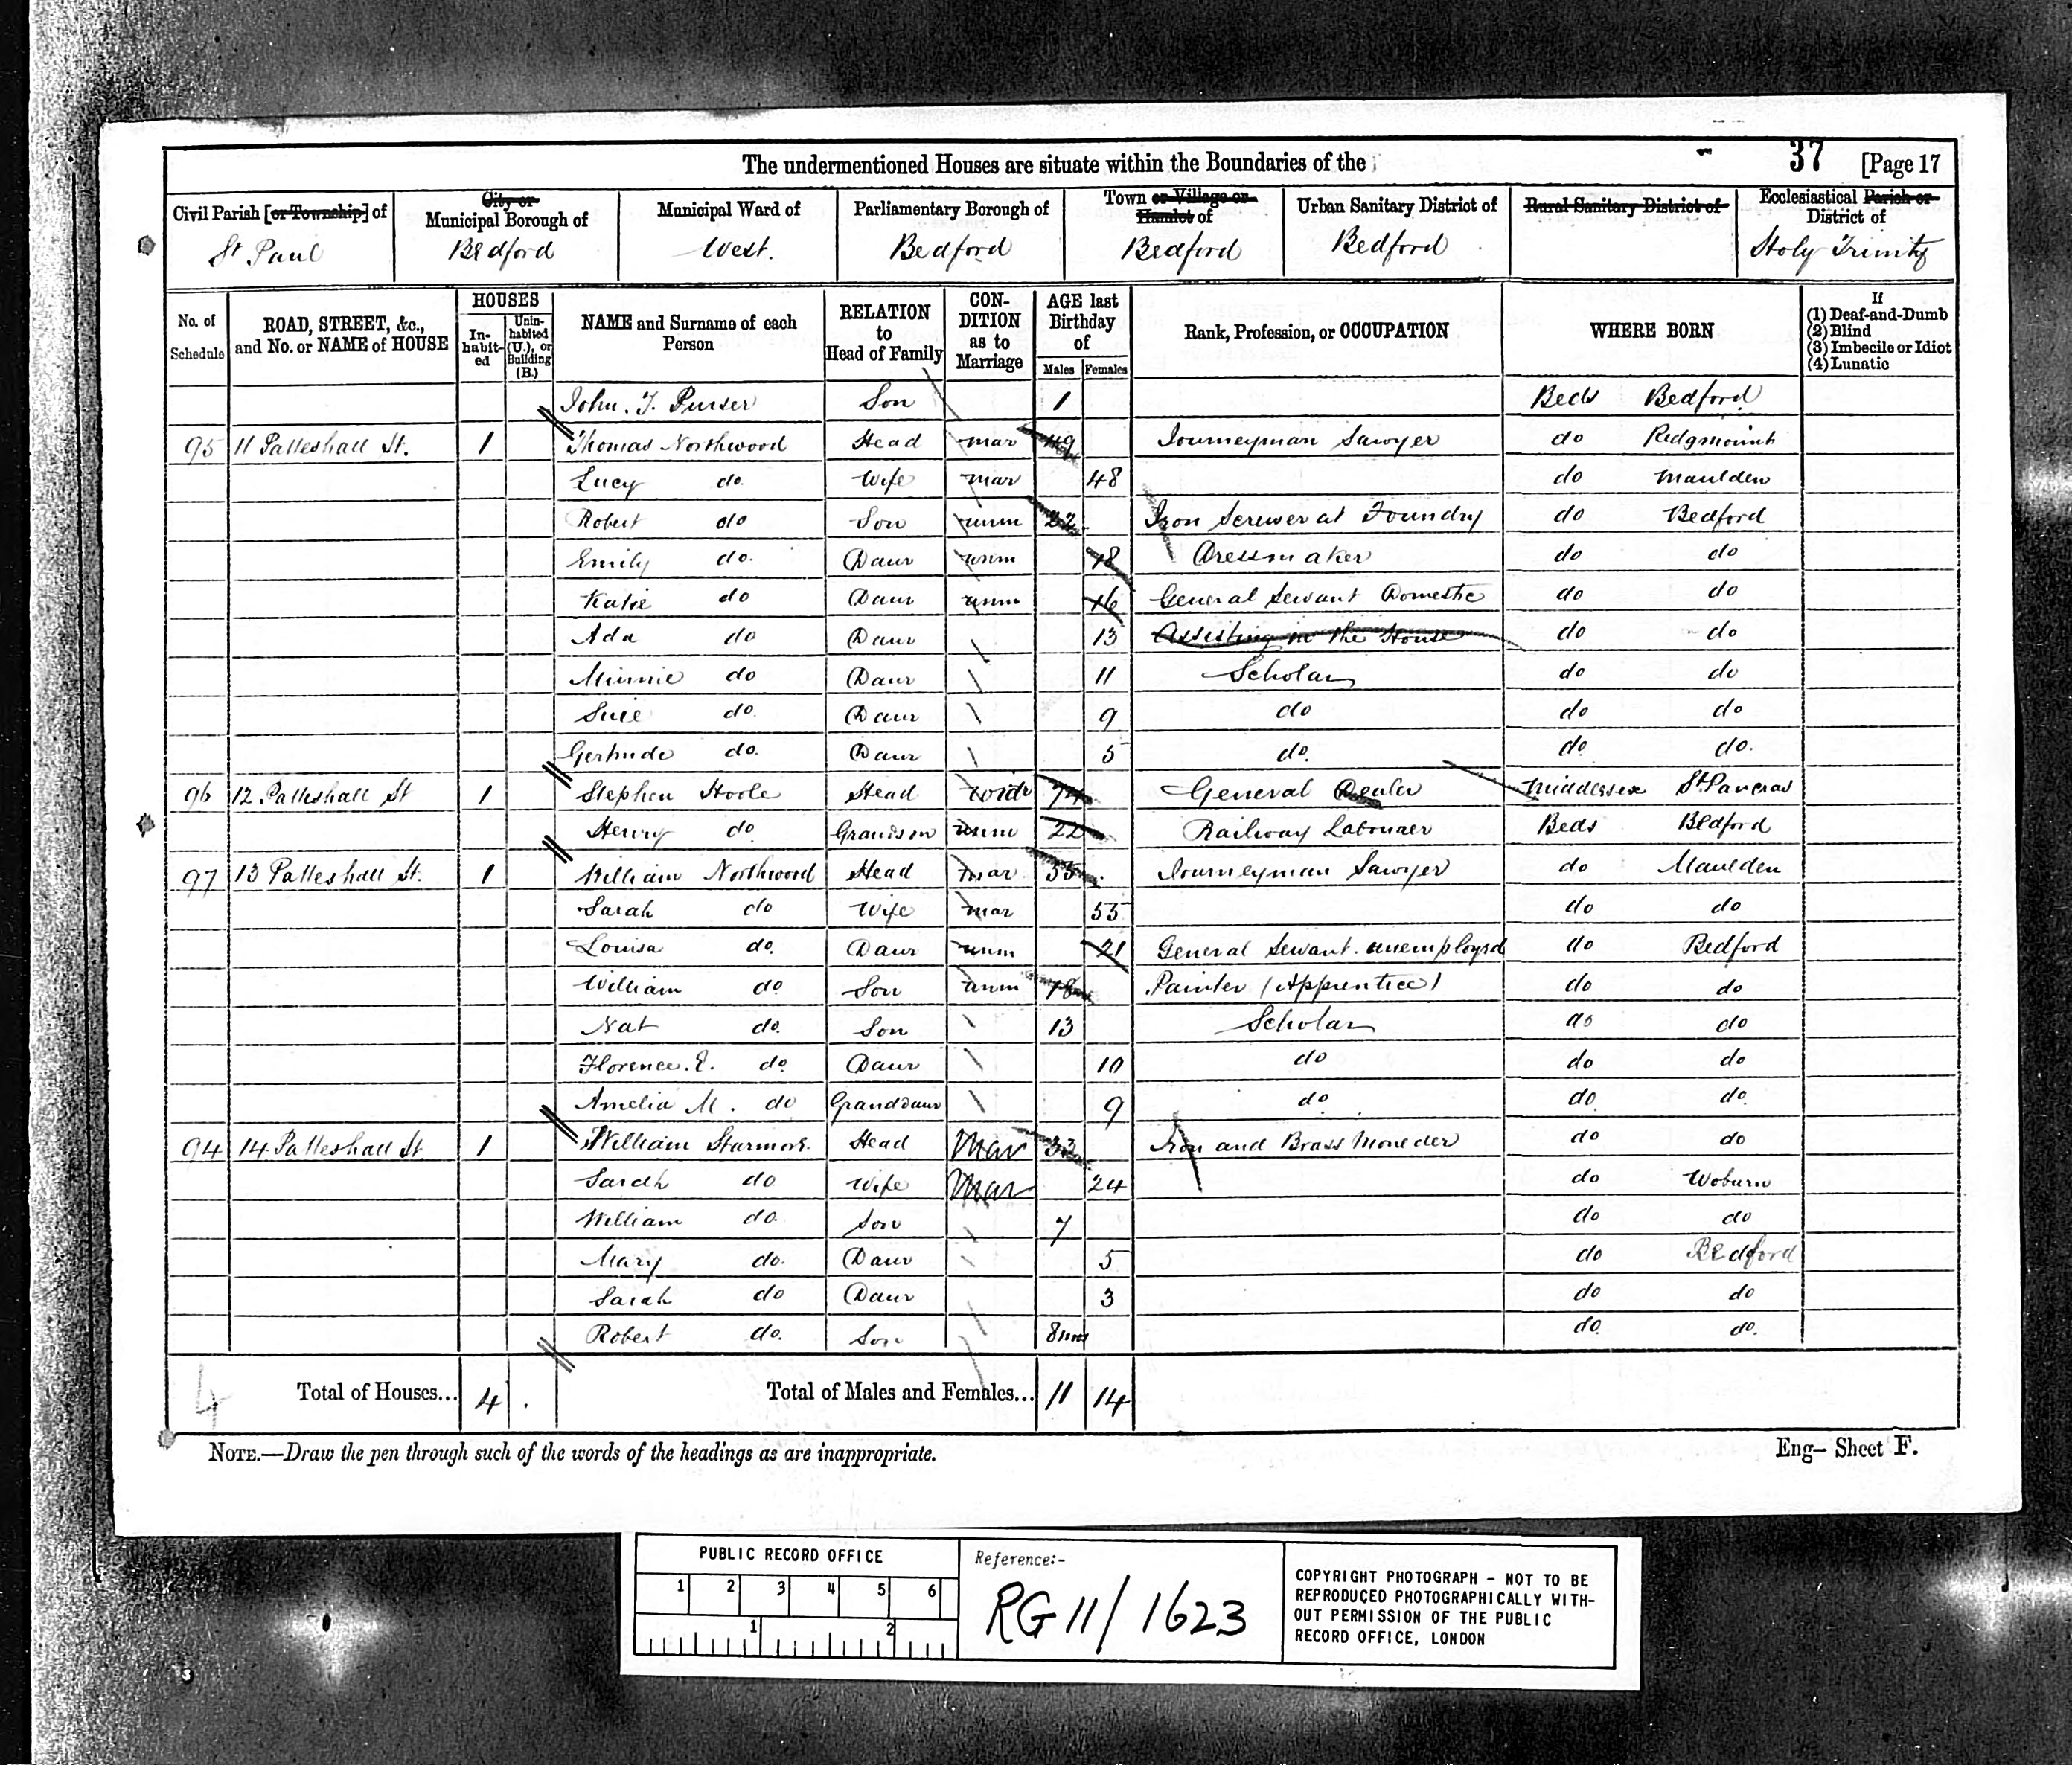 The undermentioned Houses are situate within the Boundaries of the 37 [Page 17
Civil Parish [or Township] of City or Municipal Borough of Municipal Ward of Parliamentary Borough of Town or Village or Hamlet of Urban Sanitary District of Rural Sanitary District of Ecclesiastical Parish or District of
St Paul Bedford West. Bedford Bedford Bedford Holy Trinity
No. of Schedule ROAD, STREET, &c., and No. or NAME of HOUSE HOUSES In-habit-ed Unin-habited (U.), or Building (B.) NAME and Surname of each Person RELATION to Head of Family CON-DITION as to Marriage AGE last Birthday of Males Females Rank, Profession, or OCCUPATION WHERE BORN If (1) Deaf-and-Dumb (2) Blind (3) Imbecile or Idiot (4) Lunatic
John. T. Purser Son 1 Beds Bedford
95 11 Patteshall St. 1 Thomas Northwood Head mar 49 Journeyman Sawyer do Ridgmount
Lucy do. Wife mar 48 do Maulden
Robert do Son unm 22 Iron Screwer at Foundry do Bedford
Emily do. Daur unm 18 Dressmaker do do
Katie do Daur unm 16 General Servant Domestic do do
Ada do Daur 13 Assisting in the House do do
Minnie do Daur 11 Scholar do do
Susie do. Daur 9 do do do
Gertrude do. Daur 5 do. do do.
96 12 Patteshall St 1 Stephen Hoole Head widr 74 General Dealer Middlesex St Pancras
Henry do Grandson unm 22 Railway Labourer Beds Bedford
97 13 Patteshall St. 1 William Northwood Head mar 55 Journeyman Sawyer do Maulden
Sarah do Wife mar 55 do do
Louisa do. Daur unm 21 General Servant. unemployed do Bedford
William do Son unm 18 Painter (Apprentice) do do
Nat do. Son 13 Scholar do do
Florence. E. do Daur 10 do do do
Amelia M. do Granddaur 9 do do do
94 14 Patteshall St. 1 William Sturmore. Head Mar 33 Iron and Brass Moulder do do
Sarah do Wife Mar 24 do Woburn
William do. Son 7 do do
Mary do. Daur 5 do Bedford
Sarah do Daur 3 do do
Robert do. Son 8mo do. do.
4 Total of Houses... 4 Total of Males and Females... 11 14
NOTE.—Draw the pen through such of the words of the headings as are inappropriate. Eng— Sheet F.
PUBLIC RECORD OFFICE
1 2 3 4 5 6
1 2
Reference:-
RG 11/1623
COPYRIGHT PHOTOGRAPH - NOT TO BE
REPRODUCED PHOTOGRAPHICALLY WITH-
OUT PERMISSION OF THE PUBLIC
RECORD OFFICE, LONDON
3